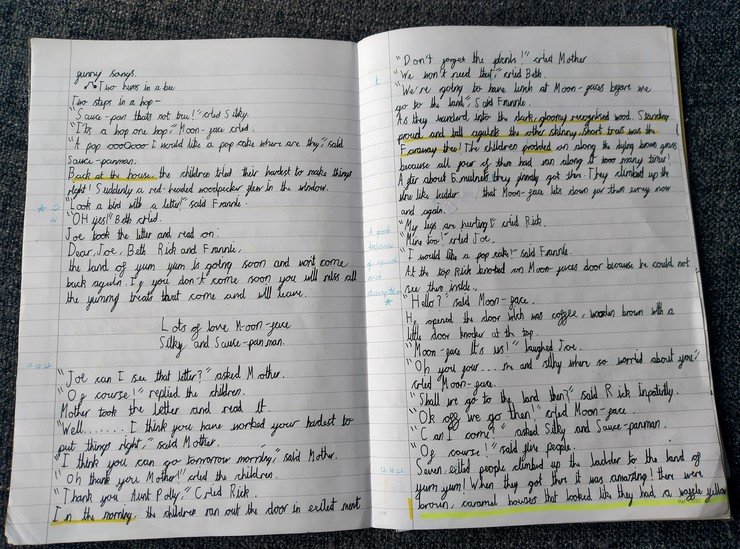 funny songs.
Two hops in a bee
Two steps in a hop—
"Sauce-pan thats not true!" cried Silky.
"It's a hop one hop." Moon-face cried.
"A pop oooOooo I would like a pop cake where are they," said
Sauce-panman.
Back at the house the children tried their hardest to make things
right! Suddenly a red-headed woodpecker flew in the window.
"Look a bird with a letter!" said Frannie.
"OH yes!" Beth cried.
Joe took the letter and read on:
Dear, Joe, Beth Rick and Frannie,
the land of yum yum is going soon and wont come
back again. If you don't come soon you will miss all
the yummy treats that come and will leave.
Lots of love Moon-face
Silky and Sauce-panman.
10-10-22
"Joe can I see that letter?" asked Mother.
"Of course!" replied the children.
Mother took the letter and read it.
"Well....... I think you have worked your hardest to
put things right," said Mother.
"I think you can go tomorrow morning," said Mother.
"Oh thank you Mother!" cried the children.
"Thank you Aunt Polly," Cried Rick.
In the morning, the children ran out the door in exited ment
"Don't forget the plank!" cried Mother
"We won't need that," cried Beth.
"We're going to have lunch at Moon-faces before we
go to the land", Said Frannie.
As they wanderd into the dark, gloomy recognised wood. Standing
proud and tall againts the other skinny, short trees was the
Faraway tree! The children prodded on along the dying brown grass
because all four of them had ran along it tooo many times!
After about 6 minutes they finaly got thre. They climbed up the
vine like ladder that Moon-face lets down for them evrey now
and again.
"My legs are hurting!" cried Rick.
"Mine too!" cried Joe.
A good
balance
of speech
and
discription
"I would like a pop cake!" said Frannie.
At the top Rick knocked on Moon-faces door because he could not
see them inside.
"Hello?" said Moon-face.
He opened the door wich was , wooden brown with a
little door knocker at the top.
"Moon-face it's us!" laughed Joe.
"Oh you four.... me and silky where so worried about you"
cried Moon-face.
"Shall we go to the land then?" said Rick Inpatintly.
"Ok off we go then!" cried Moon-face.
"Can I come?" asked Silky and Sauce-panman.
"Of course!" said five people.
12-10-22
Seven exited people climbed up the ladder to the land of
yum yum! When they got thre it was amazing! there were
brown, caramel houses that looked like they had a waffle yellow